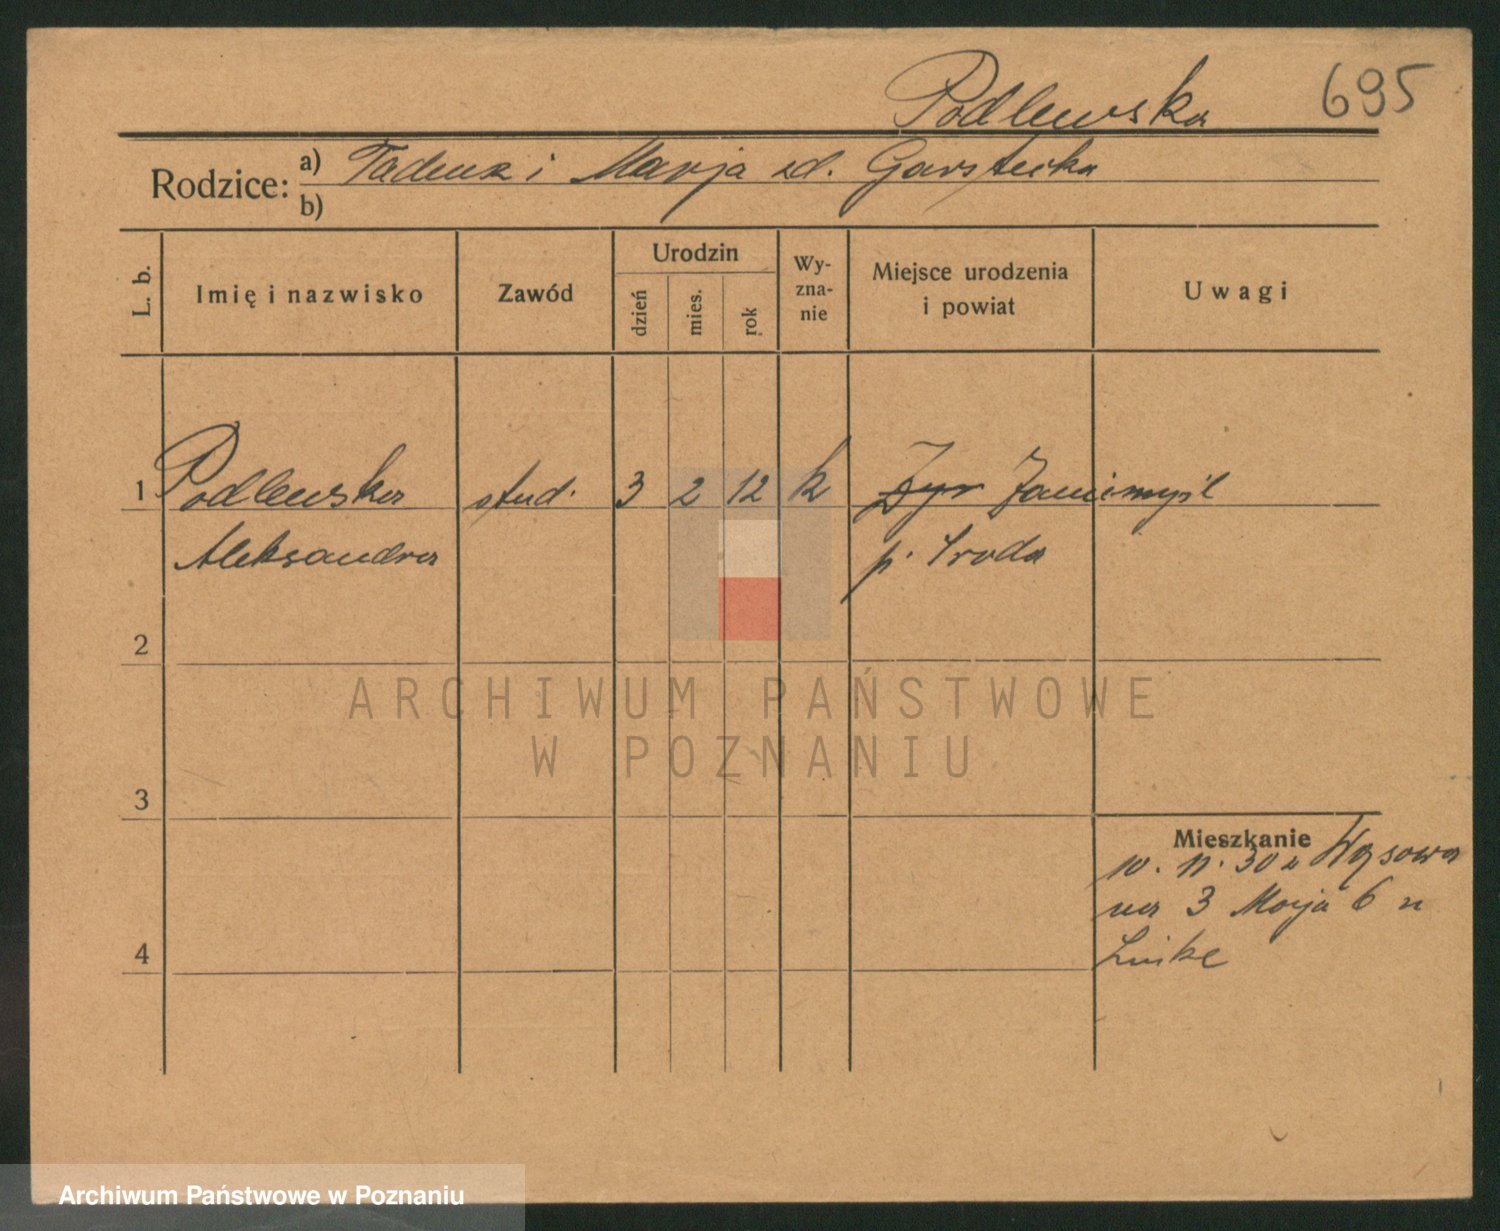 Podlewska 695
Rodzice: a) Tadeusz i Marja zd. Garstecka
b)
L. b. Imię i nazwisko Zawód Urodzin dzień mies. rok Wyznanie Miejsce urodzenia i powiat Uwagi
1 Podlewska stud. 3 2 12 k Żyr Zaniemyśl
Aleksandra p. Sroda
2
3
4
Mieszkanie
30 u
na 3 Maja 6 u
Linke
ARCHIWUM PAŃSTWOWE
W POZNANIU
Archiwum Państwowe w Poznaniu